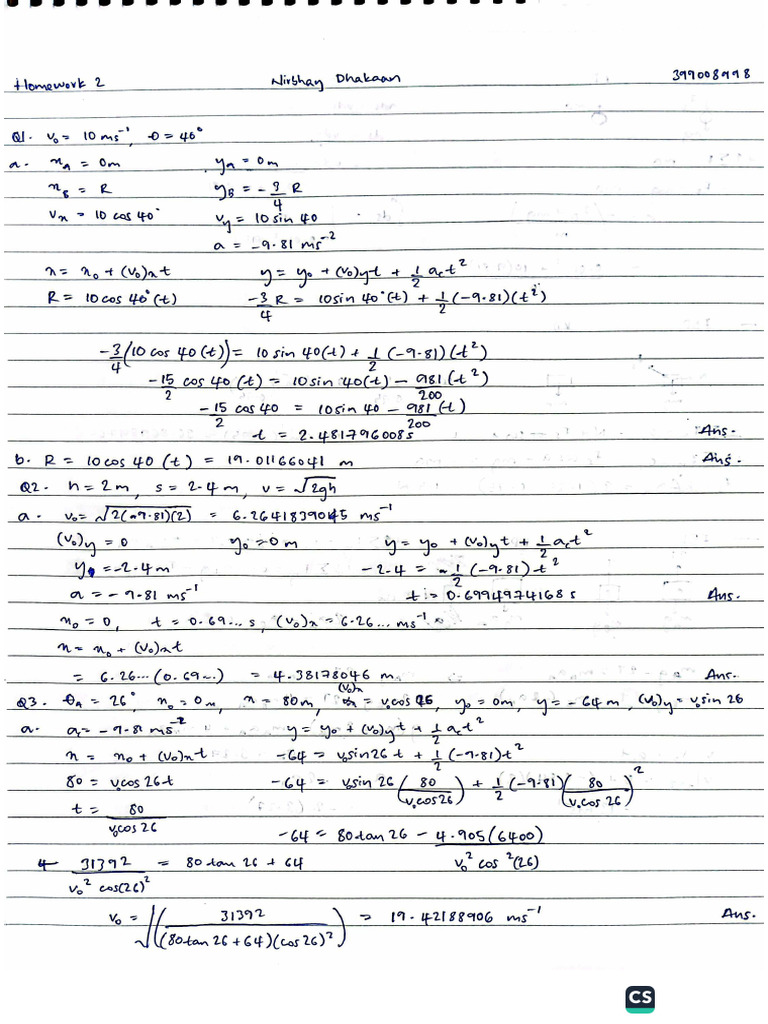 Homework 2 Nirbhay Dhakaan 399008998
Q1. v₀ = 10 ms⁻¹, θ = 40°
a. x_A = 0m y_A = 0m
x_B = R y_B = -3/4 R
v_x = 10 cos 40° v_y = 10 sin 40
a = -9.81 ms⁻²
x = x₀ + (v₀)ₓt y = y₀ + (v₀)_y t + 1/2 a_c t²
R = 10 cos 40° (t) -3/4 R = 10 sin 40° (t) + 1/2 (-9.81)(t²)
-3/4 (10 cos 40 (t)) = 10 sin 40 (t) + 1/2 (-9.81)(t²)
-15/2 cos 40 (t) = 10 sin 40 (t) - 981/200 (t²)
-15/2 cos 40 = 10 sin 40 - 981/200 (t)
t = 2.481796008s Ans.
b. R = 10 cos 40 (t) = 19.01166041 m Ans.
Q2. h = 2m, s = 2.4 m, v = √2gh
a. v₀ = √2(-9.81)(2) = 6.264183905 ms⁻¹
(v₀)_y = 0 y₀ = 0 m y = y₀ + (v₀)_y t + 1/2 a_c t²
y = -2.4 m -2.4 = 1/2 (-9.81) t²
a = -9.81 ms⁻¹ t = 0.6994974168 s Ans.
x₀ = 0, t = 0.69... s, (v₀)ₓ = 6.26... ms⁻¹
x = x₀ + (v₀)ₓt
= 6.26... (0.69...) = 4.38178046 m Ans.
Q3. θ_A = 26°, x₀ = 0m, x = 80m, (v₀)ₓ = v₀ cos 26, y₀ = 0m, y = -64 m, (v₀)_y = v₀ sin 26
a. a = -9.81 ms⁻² y = y₀ + (v₀)_y t + 1/2 a_c t²
x = x₀ + (v₀)ₓ t -64 = v₀ sin 26 t + 1/2 (-9.81) t²
80 = v₀ cos 26 t -64 = v₀ sin 26 (80/v₀ cos 26) + 1/2 (-9.81) (80/v₀ cos 26)²
t = 80/v₀ cos 26
-64 = 80 tan 26 - 4.905 (6400)/v₀² cos² (26)
31392/v₀² cos(26)² = 80 tan 26 + 64
v₀ = √(31392/(80 tan 26 + 64)(cos 26)²) = 19.42188906 ms⁻¹ Ans.
CS